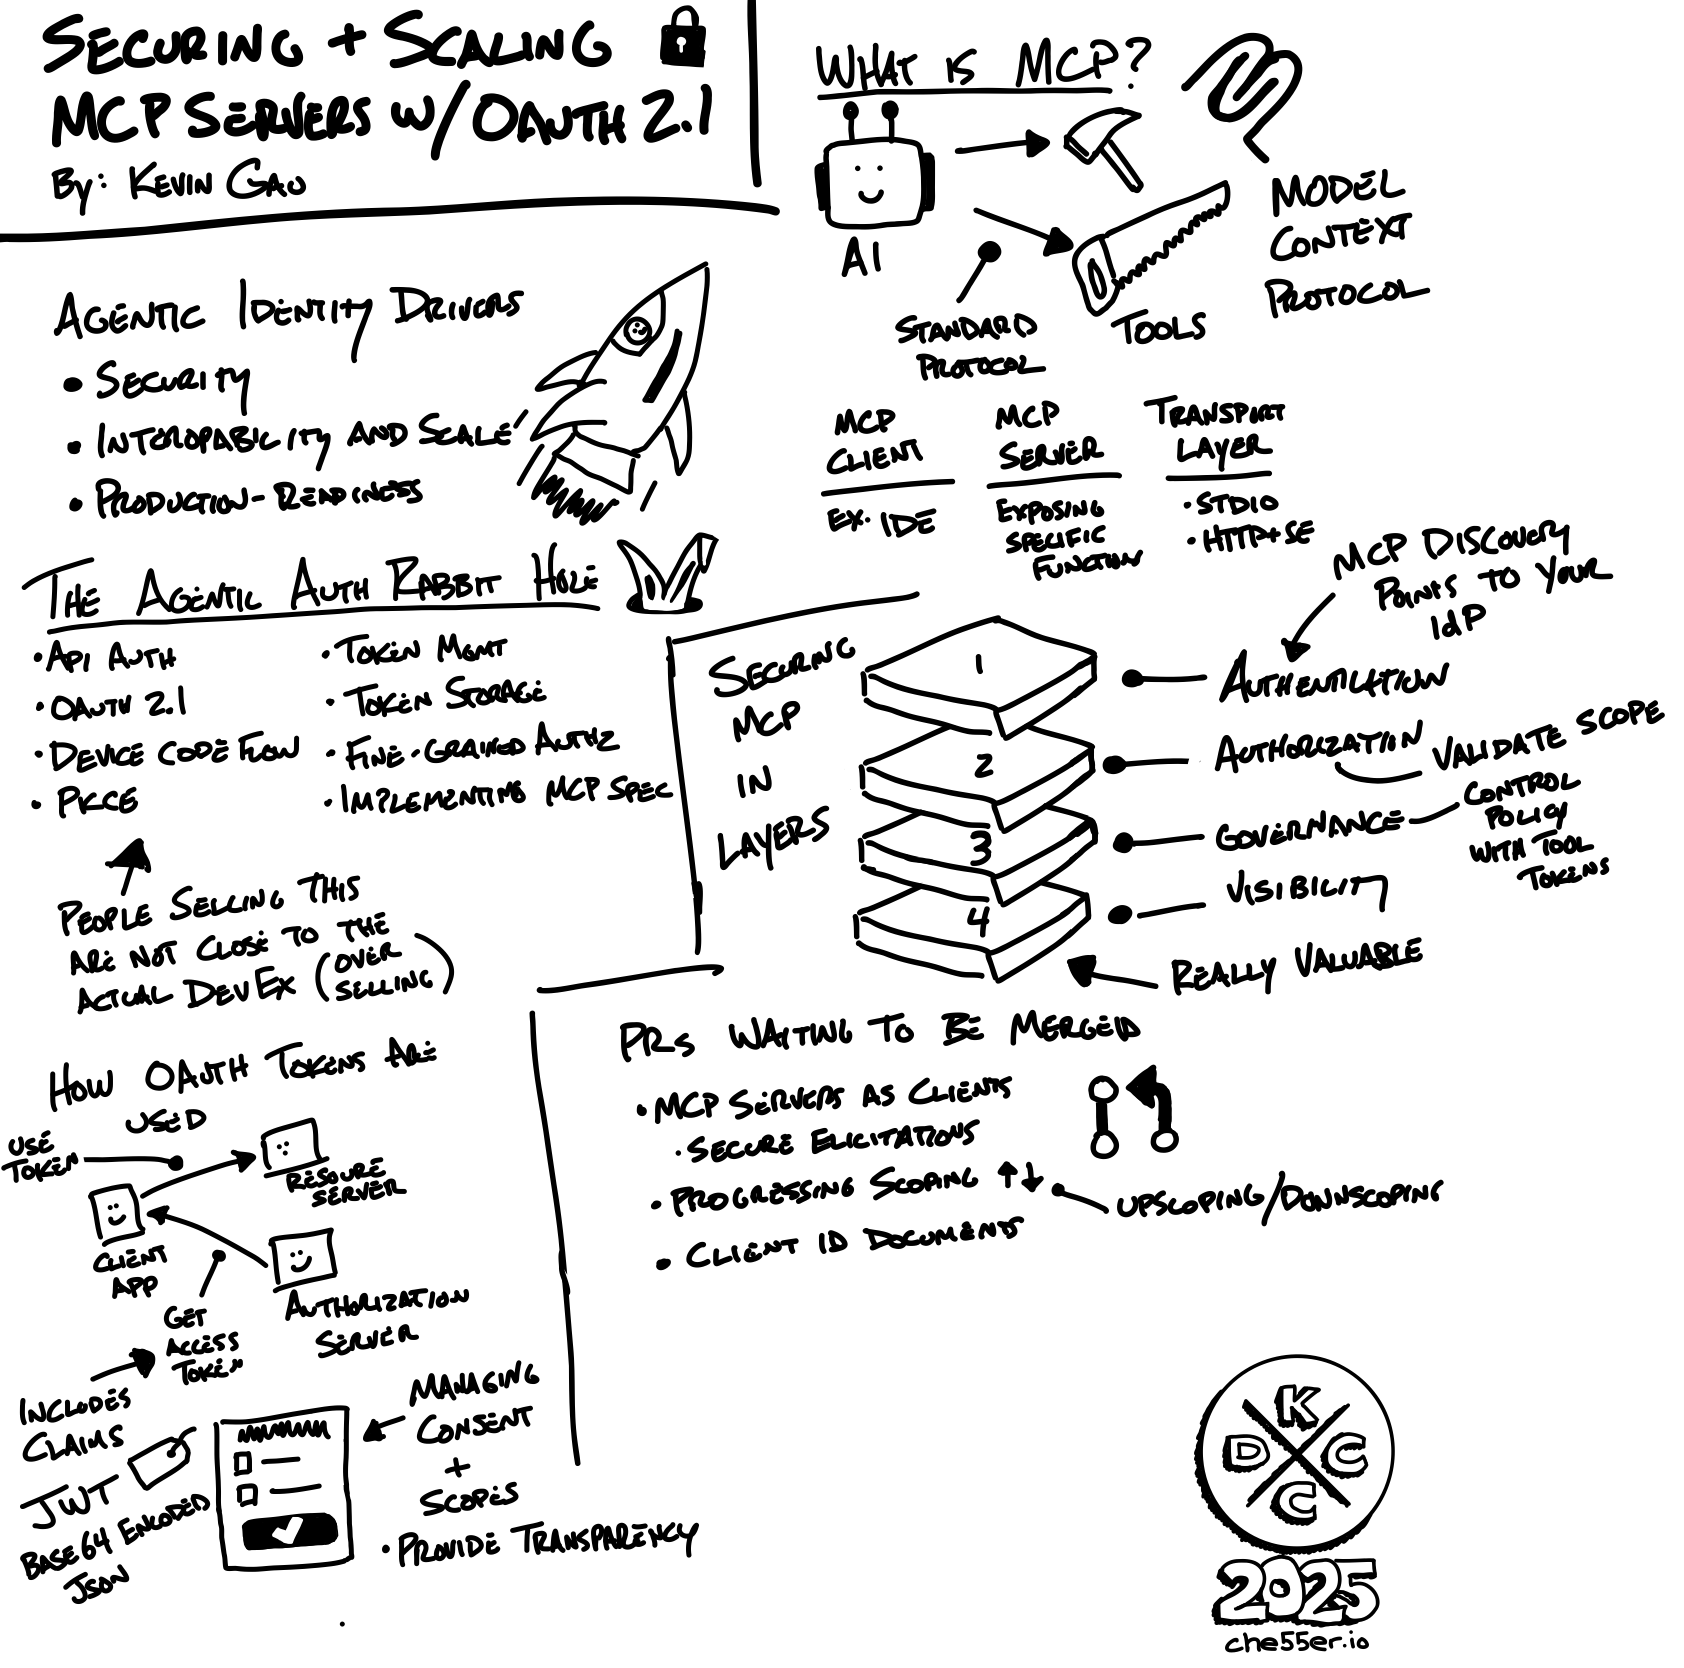 SECURING + SCALING
MCP SERVERS W/ OAUTH 2.1
BY: KEVIN GAO
WHAT IS MCP?
AI
STANDARD
PROTOCOL
TOOLS
MODEL
CONTEXT
PROTOCOL
AGENTIC IDENTITY DRIVERS
• SECURITY
• INTEROPABILITY AND SCALE
• PRODUCTION-READINESS
MCP
CLIENT
EX. IDE
MCP
SERVER
EXPOSING
SPECIFIC
FUNCTION
TRANSPORT
LAYER
• STDIO
• HTTP+SE
THE AGENTIC AUTH RABBIT HOLE
• API AUTH
• OAUTH 2.1
• DEVICE CODE FLOW
• PKCE
• TOKEN MGMT
• TOKEN STORAGE
• FINE-GRAINED AUTHZ
• IMPLEMENTING MCP SPEC
PEOPLE SELLING THIS
ARE NOT CLOSE TO THE
ACTUAL DEVEX (OVER
SELLING)
SECURING
MCP
IN
LAYERS
1
2
3
4
MCP DISCOVERY
POINTS TO YOUR
IdP
AUTHENTICATION
AUTHORIZATION
VALIDATE SCOPE
GOVERNANCE
CONTROL
POLICY
WITH TOOL
TOKENS
VISIBILITY
REALLY VALUABLE
HOW OAUTH TOKENS ARE
USED
USE
TOKEN
RESOURE
SERVER
CLIENT
APP
GET
ACCESS
TOKEN
AUTHORIZATION
SERVER
INCLUDES
CLAIMS
JWT
BASE64 ENCODED
JSON
MANAGING
CONSENT
+
SCOPES
• PROVIDE TRANSPARENCY
PRs WAITING TO BE MERGED
• MCP SERVERS AS CLIENTS
• SECURE ELICITATIONS
• PROGRESSING SCOPING ↑↓
UPSCOPING/DOWNSCOPING
• CLIENT ID DOCUMENTS
K
D C
C
2025
che55er.io